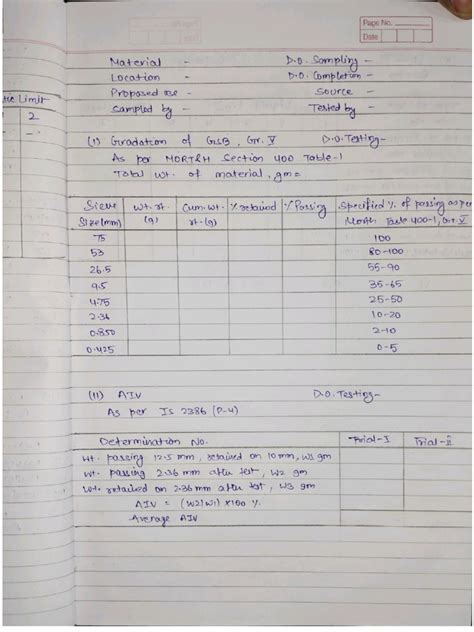 Page No.
Date
Material - D.O. Sampling -
Location - D.O. Completion -
Proposed use - Source -
Sampled by - Tested by -
Limit
2
(I) Gradation of GSB, Gr. V D.O. Testing -
As per MORT&H Section 400 Table-1
Total wt. of material, gm =
Sieve Wt. rt. Cum. wt. % retained % Passing Specified % of passing as per
Size(mm) (g) rt. (g) Morth Table 400-1, Gr. V
75 100
53 80-100
26.5 55-90
9.5 35-65
4.75 25-50
2.36 10-20
0.850 2-10
0.425 0-5
(II) AIV D.O. Testing -
As per IS 2386 (P-4)
Determination No. Trial-I Trial-II
Wt. passing 12.5 mm, retained on 10 mm, W1 gm
Wt. passing 2.36 mm after test, W2 gm
Wt. retained on 2.36 mm after test, W3 gm
AIV = (W2/W1) x100 %
Average AIV